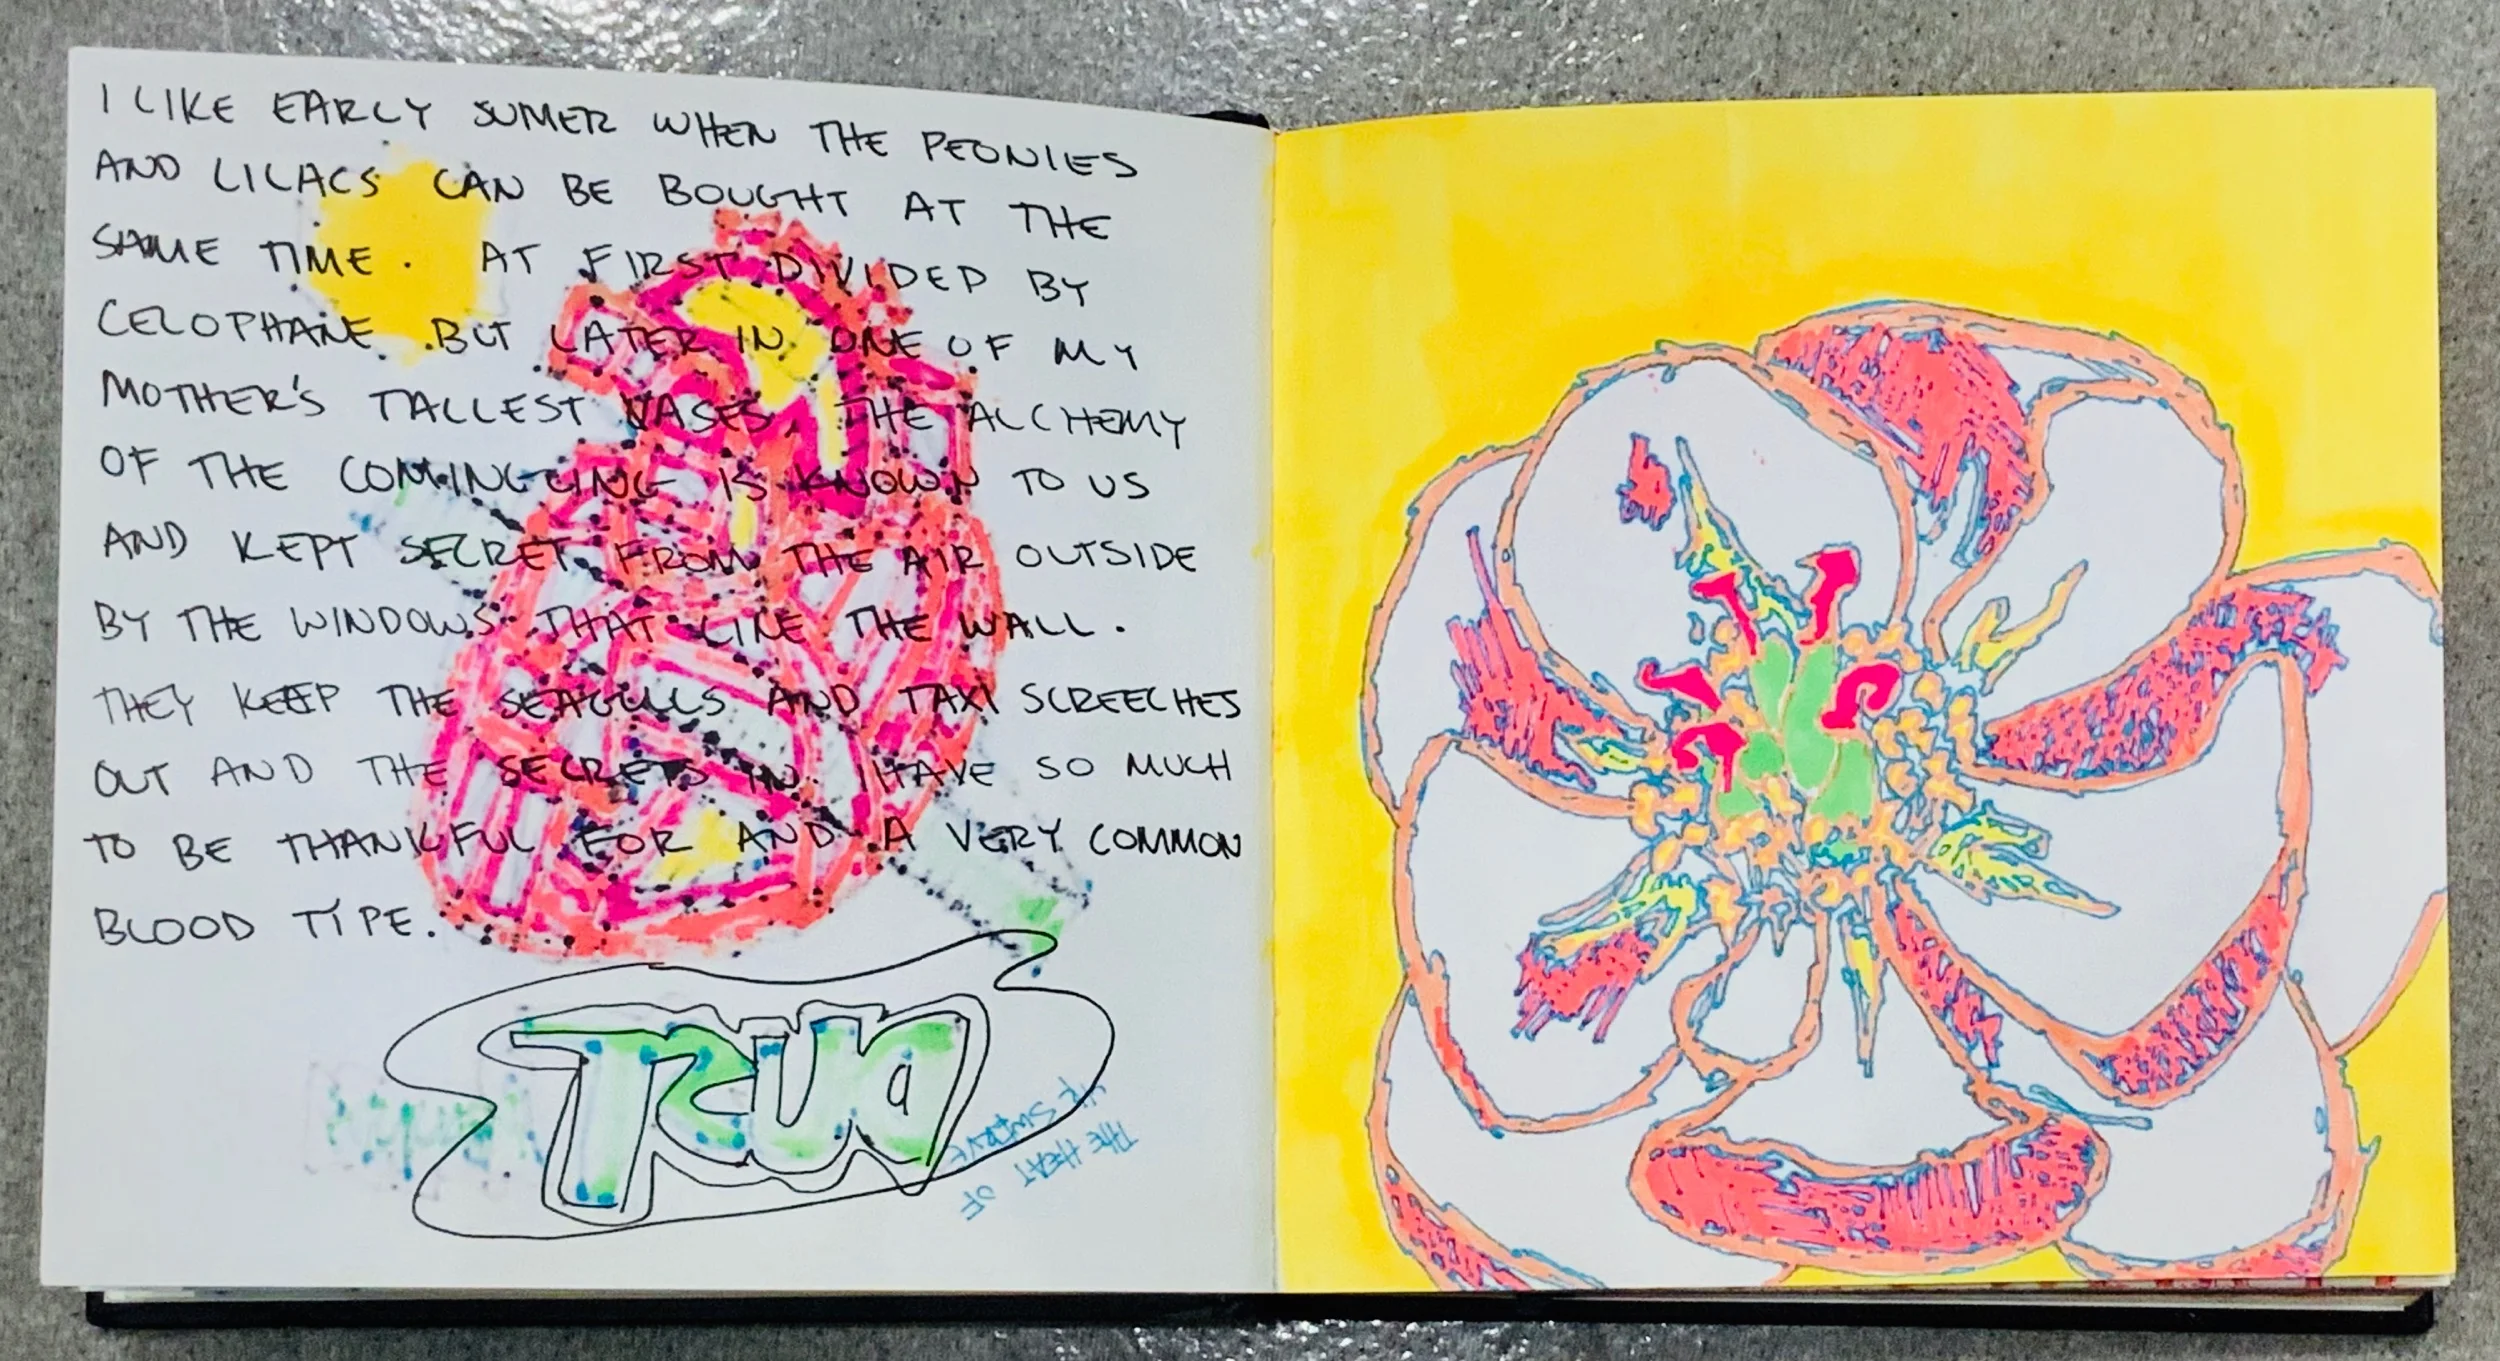 I LIKE EARLY SUMER WHEN THE PEONIES
AND LILACS CAN BE BOUGHT AT THE
SAME TIME. AT FIRST DIVIDED BY
CELOPHANE. BUT LATER IN ONE OF MY
MOTHER'S TALLEST VASES, THE ALCHEMY
OF THE COMINGLING IS KNOWN TO US
AND KEPT SECRET FROM THE AIR OUTSIDE
BY THE WINDOWS THAT LINE THE WALL.
THEY KEEP THE SEAGULLS AND TAXI SCREECHES
OUT AND THE SECRETS IN. I HAVE SO MUCH
TO BE THANKFUL FOR AND A VERY COMMON
BLOOD TYPE.
THE HEAT OF